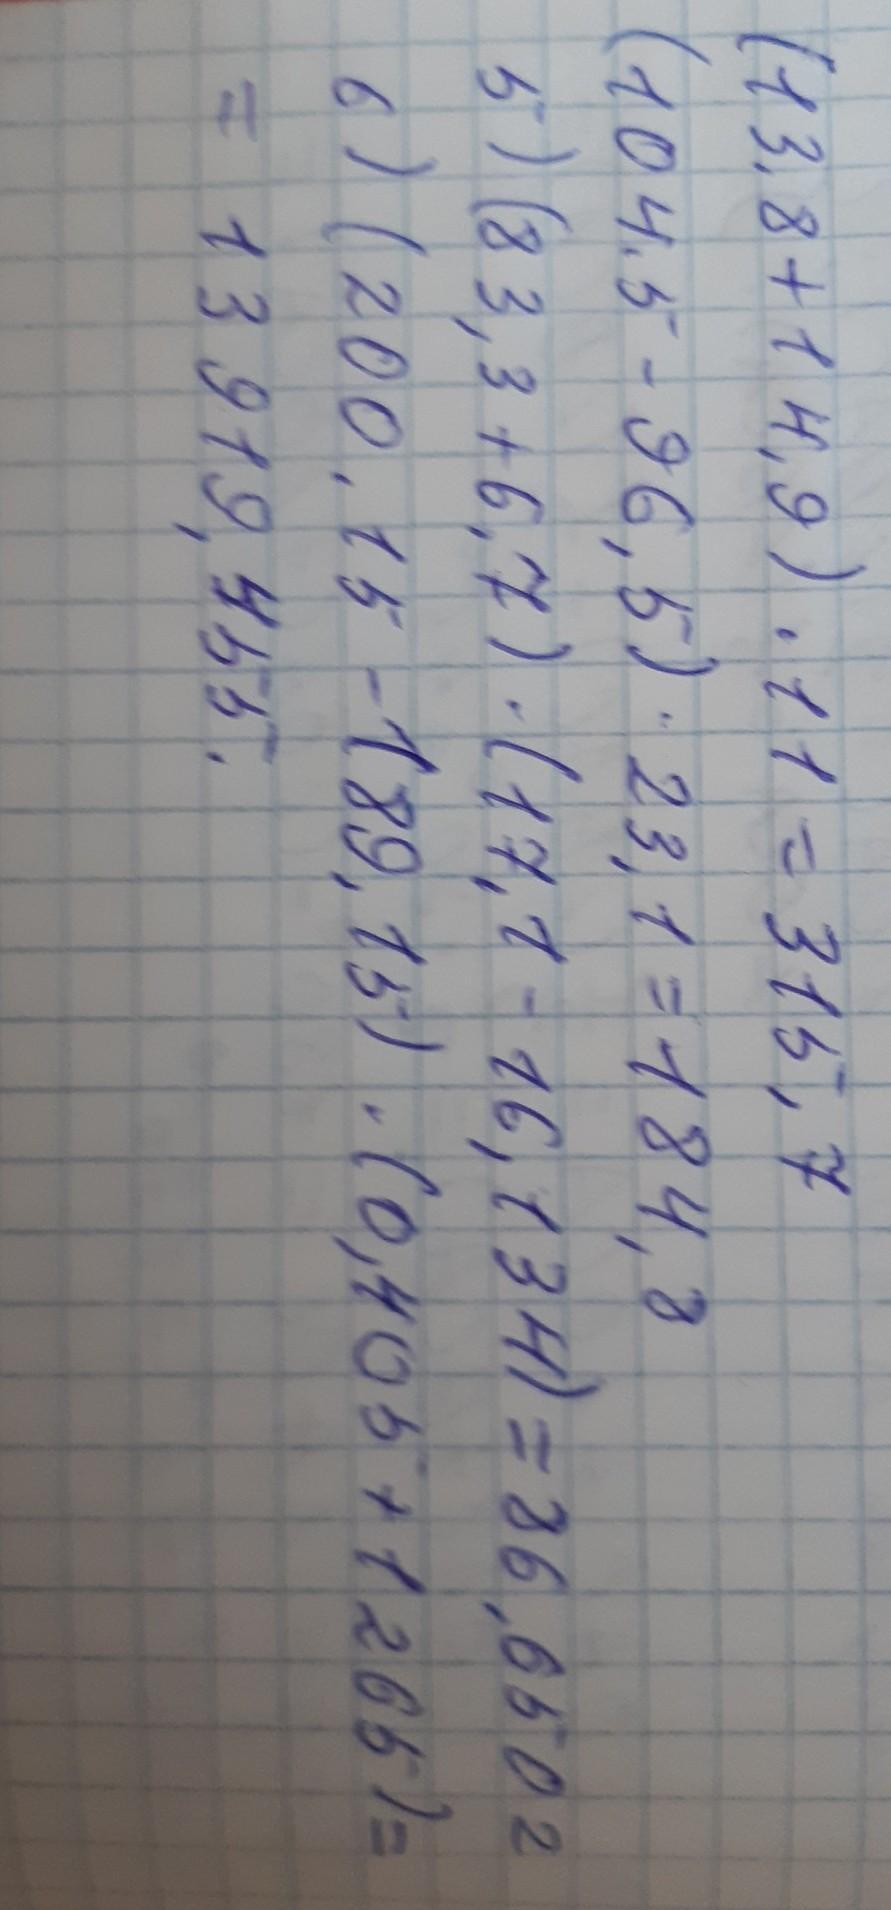 (13,8+14,9)·11=315,7
(104,5-96,5)·23,1=184,8
5) (83,3+6,7)·(17,1-16,134)=86,6502
6) (200,15-189,15)·(0,405+1265)=
= 13919,455.